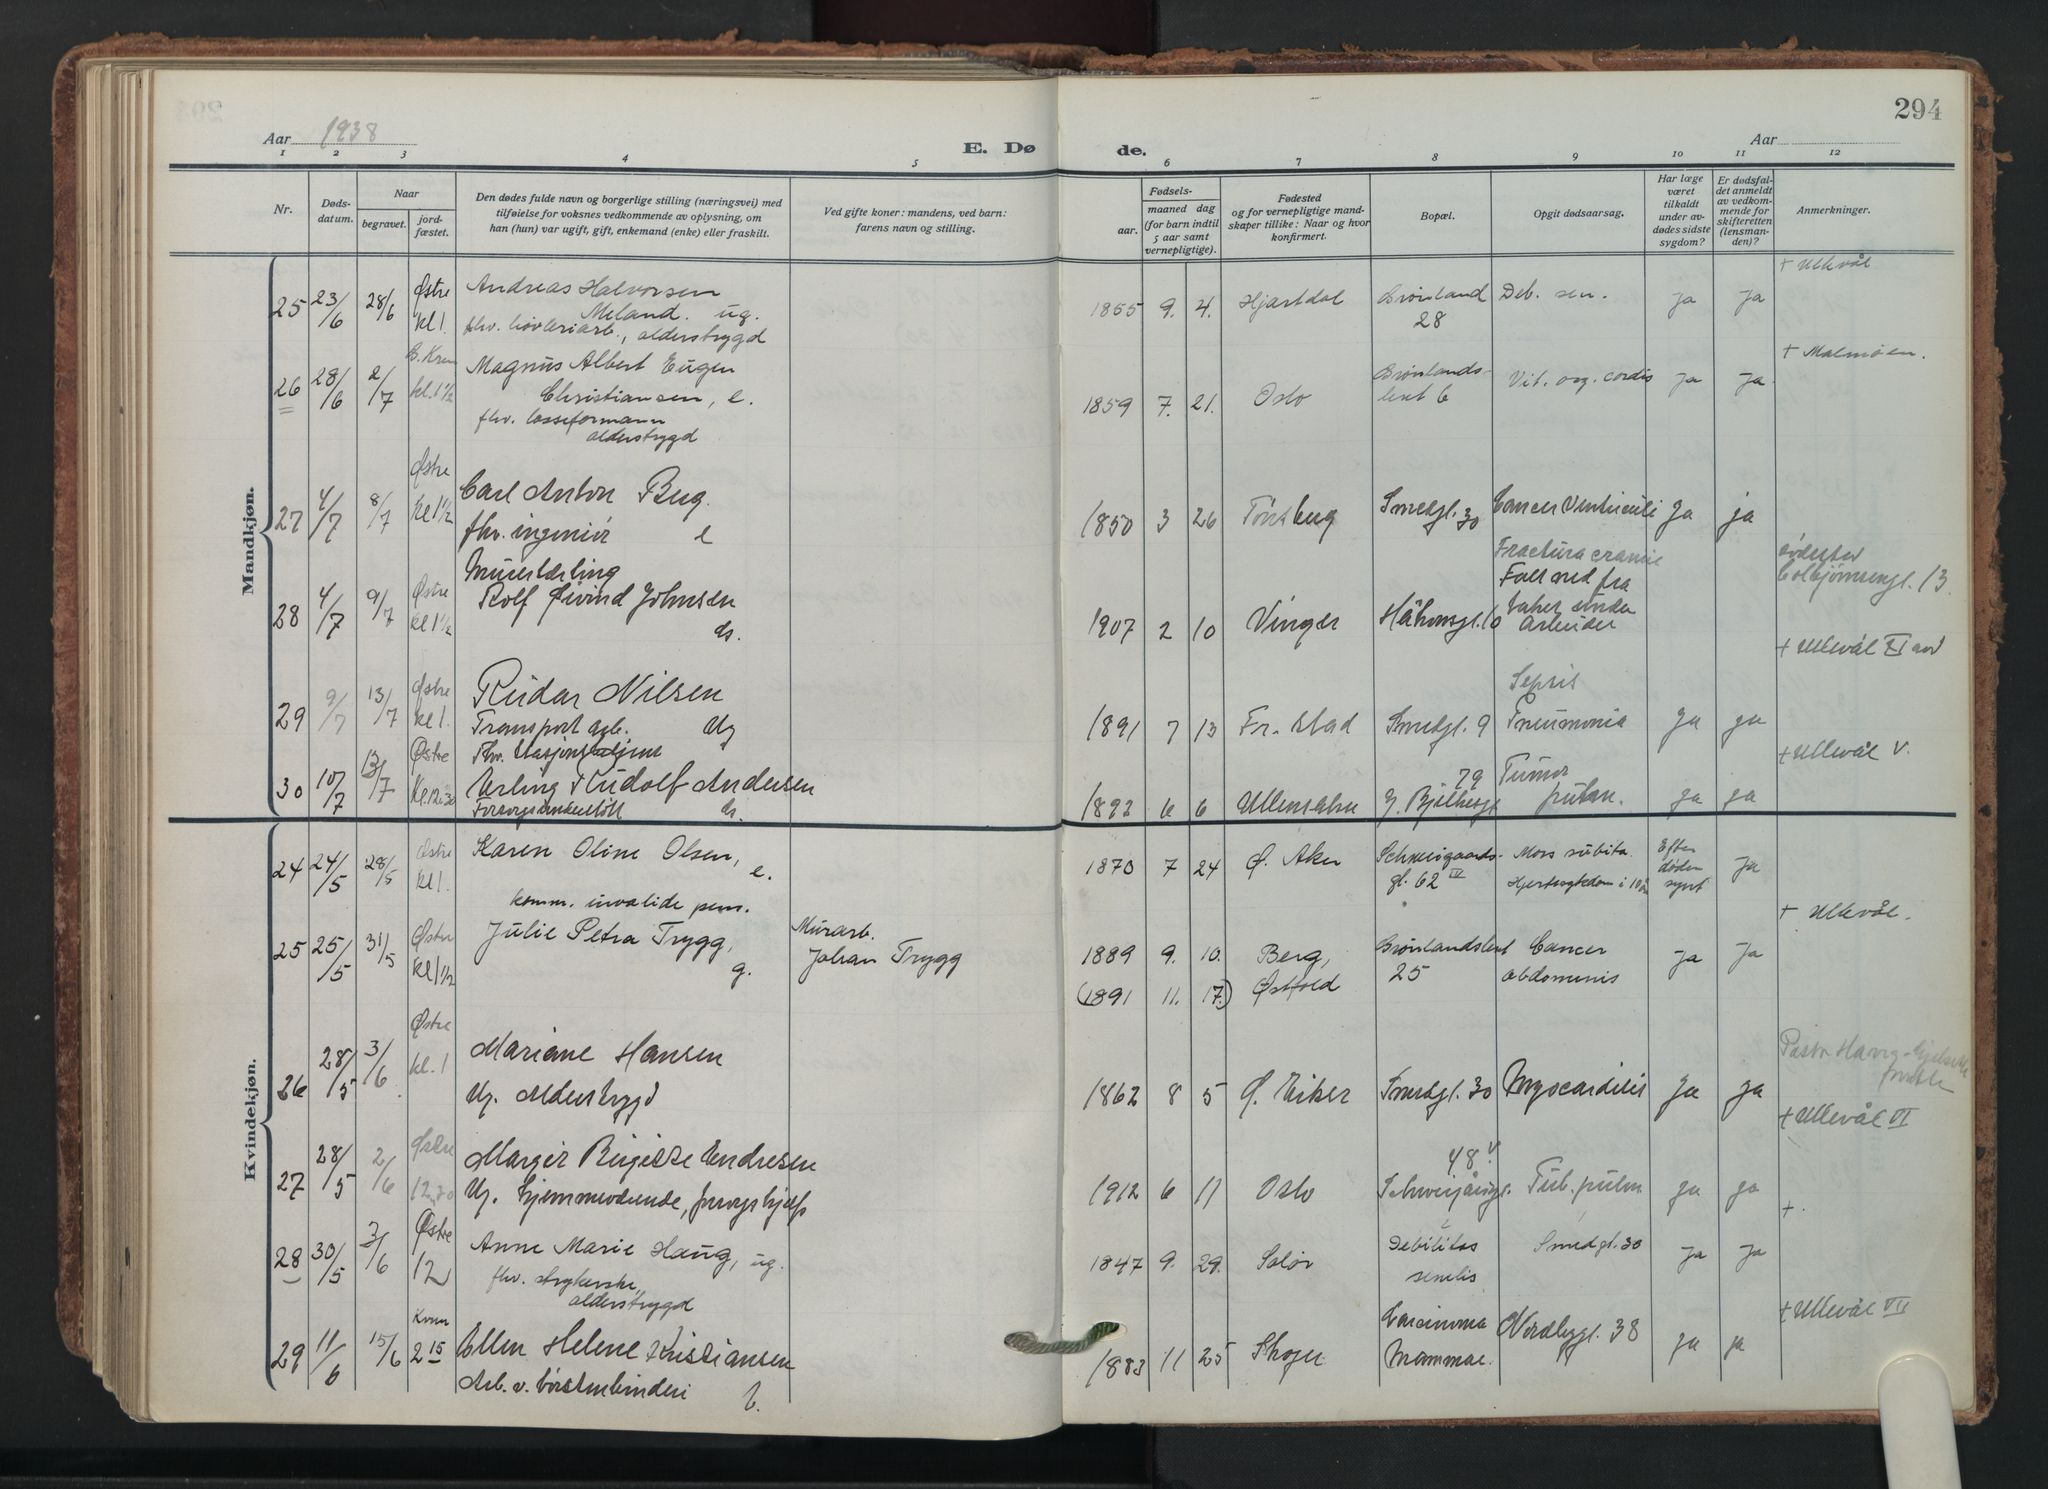 294
Aar 1938
E. Dø
de.
Aar
1 2 3 4 5 6 7 8 9 10 11 12
Nr.
Døds-
datum.
Naar
begravet.
jord-
fæstet.
Den dødes fulde navn og borgerlige stilling (næringsvei) med
tilføielse for voksnes vedkommende av oplysning, om
han (hun) var ugift, gift, enkemand (enke) eller fraskilt.
Ved gifte koner: mandens, ved barn:
farens navn og stilling.
Fødsels-
aar.
maaned dag
(for barn indtil
5 aar samt
vernepligtige).
Fødested
og for vernepligtige mand-
skaper tillike: Naar og hvor
konfirmert.
Bopæl.
Opgit dødsaarsag.
Har læge
været
tilkaldt
under av-
dødes sidste
sygdom?
Er dødsfal-
det anmeldt
av vedkom-
mende for
skifteretten
(lensman-
den)?
Anmerkninger.
Mandkjøn.
25 23/6 28/6 Østre kl 1. Andreas Halvorsen
Meland. ug.
fhv. høvleriarb., alderstrygd
1855 9. 4. Hjartdal Brønland 28 Deb. sen. ja ja + Ullevål
26 28/6 2/7 Ø. Krem kl. 1 1/2 Magnus Albert Eugen
Christiansen, e.
fhv. losseformann
alderstrygd
1859 7. 21. Oslo Brønlands-
leret 6 Vit. org. cordis ja ja + Malmøen.
27 4/7 8/7 Østre kl 1 1/2 Carl Anton Bug.
fhv. ingeniør e
1850 3 26 Tønsberg Smedgt. 30 Cancer Ventriculi Ja ja
28 4/7 9/7 Østre kl 1 1/2 Murerlærling
Rolf Øivind Johnsen
ds.
1907 2 10 Vinger Håkonsgt. 10 Fractura cranie
Falt ned fra
taket under
arbeider
Colbjørnsengt. 13.
29 9/7 13/7 Østre kl 1. Reidar Nilsen
Transport arb. Ug
1891 7 13 Fr. stad Smedgt. 9 Sepsis
Pneumonia Ja ja + Ullevål XI avd
30 10/7 13/7 Østre Kl. 12.30 Fhv. stasjonsbetjent
Erling Rudolf Andersen
Forsorgsunderstøtt ds.
1892 6 6 Ullensaker 79
Tumor
pulm. ja ja + Ullevål V.
Kvindekjøn.
24 24/5 28/5 Østre kl 1. Karen Oline Olsen,
e.
komm. invalide pens.
1870 7 24 Ø. Aker Schweigaards-
gt. 62 IV Mors subita.
Hjertesykdom i 10 år Efter
døden
synt ja
25 25/5 31/5 Østre kl 1 1/2 Julie Petra Trygg,
g.
Murarb.
Johan Trygg
1889 9. 10. Berg,
(1891 11. 17.) Østfold Brønlandsleret
25 Cancer
abdominis ja ja + Ullevål.
26 28/5 3/6 Østre kl. 1 Mariane Hansen
Ug. Alderstrygd
1862 8 5 Ø. Eiker Smedgt. 30 Myocarditis Ja ja Pastor Haug
27 28/5 2/6 Østre 12.30 Margit Birgitte Endresen
Ug. hjemmeværende, forsorgshjelp
1912 6 11 Oslo 48 V
Schweigårdsgt. Tub. pulm ja ja + Ullevål VI
28 30/5 3/6 Østre 12 Anne Marie Haug, ug.
fhv. strykerske,
alderstrygd
1847 9. 29. Solør Debilitas
senilis Smedgt. 30 ja ja +.
29 11/6 15/6 Krem 2 15 Ellen Helene Kristiansen
Arb. v. børstenbinderi
1883 11 25 Skoger Carcinoma
Mammae. Nordbygt. 38 ja ja + Ullevål VII